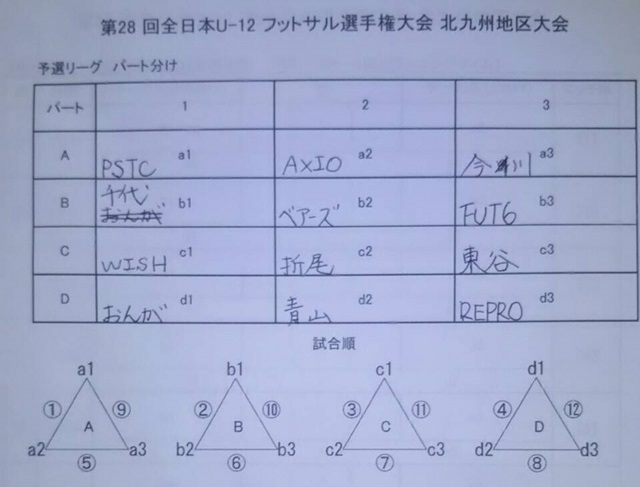 第28 回全日本U-12 フットサル選手権大会 北九州地区大会
予選リーグ パート分け
パート 1 2 3
A PSTC a1 AXIO a2 今川 a3
B 千代 おんが b1 ベアーズ b2 FUT6 b3
C WISH c1 折尾 c2 東谷 c3
D おんが d1 青山 d2 REPRO d3
試合順
a1 b1 c1 d1
① A ⑨ ② B ⑩ ③ C ⑪ ④ D ⑫
a2 a3 b2 b3 c2 c3 d2 d3
⑤ ⑥ ⑦ ⑧